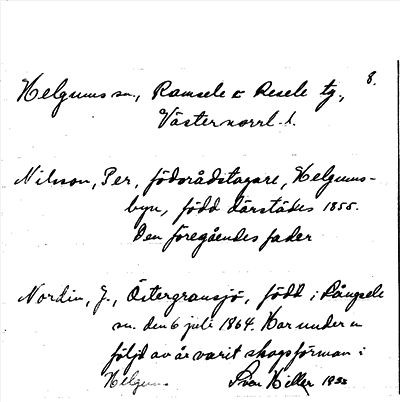 8.
Helgums sn., Ramsele o Resele tg.,
Västernorrl. l.
Nilsson, Per, födorådstagare, Helgums-
byn, född därstädes 1855.
Den föregåendes fader
Nordin, J., Östergransjö, född i Långsele
sn. den 6 juli 1864. Har under en
följd av år varit skogsförman i
Helgum.